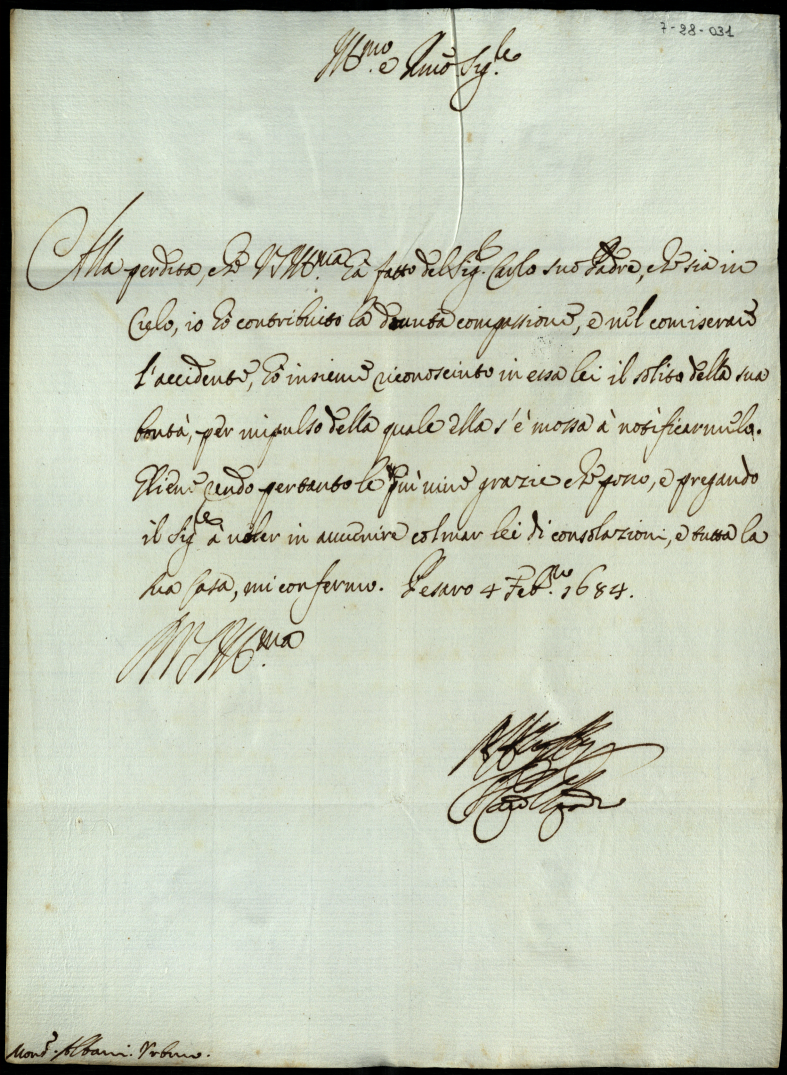 7-28-031
Ill.mo e Rmō Sig.re
Alla perdita, che VS Ill.ma hà fatto del Sig.r Carlo suo Padre, che sia in
Cielo, io hò contribuito la douuta compassione, e nel comiserare
l'accidente, hò insieme riconosciuto in essa lei il solito della sua
bontà, per impulso della quale ella s'è mossa à notificarmelo.
Gliene rendo pertanto le più uiue grazie che posso, e pregando
il Sig.re à uoler in auuenire colmar lei di consolazioni, e tutta la
sua Casa, mi confermo. Pesaro 4 Feb.ro 1684.
VS Ill.ma
Mons.r Albani. Vrbino.